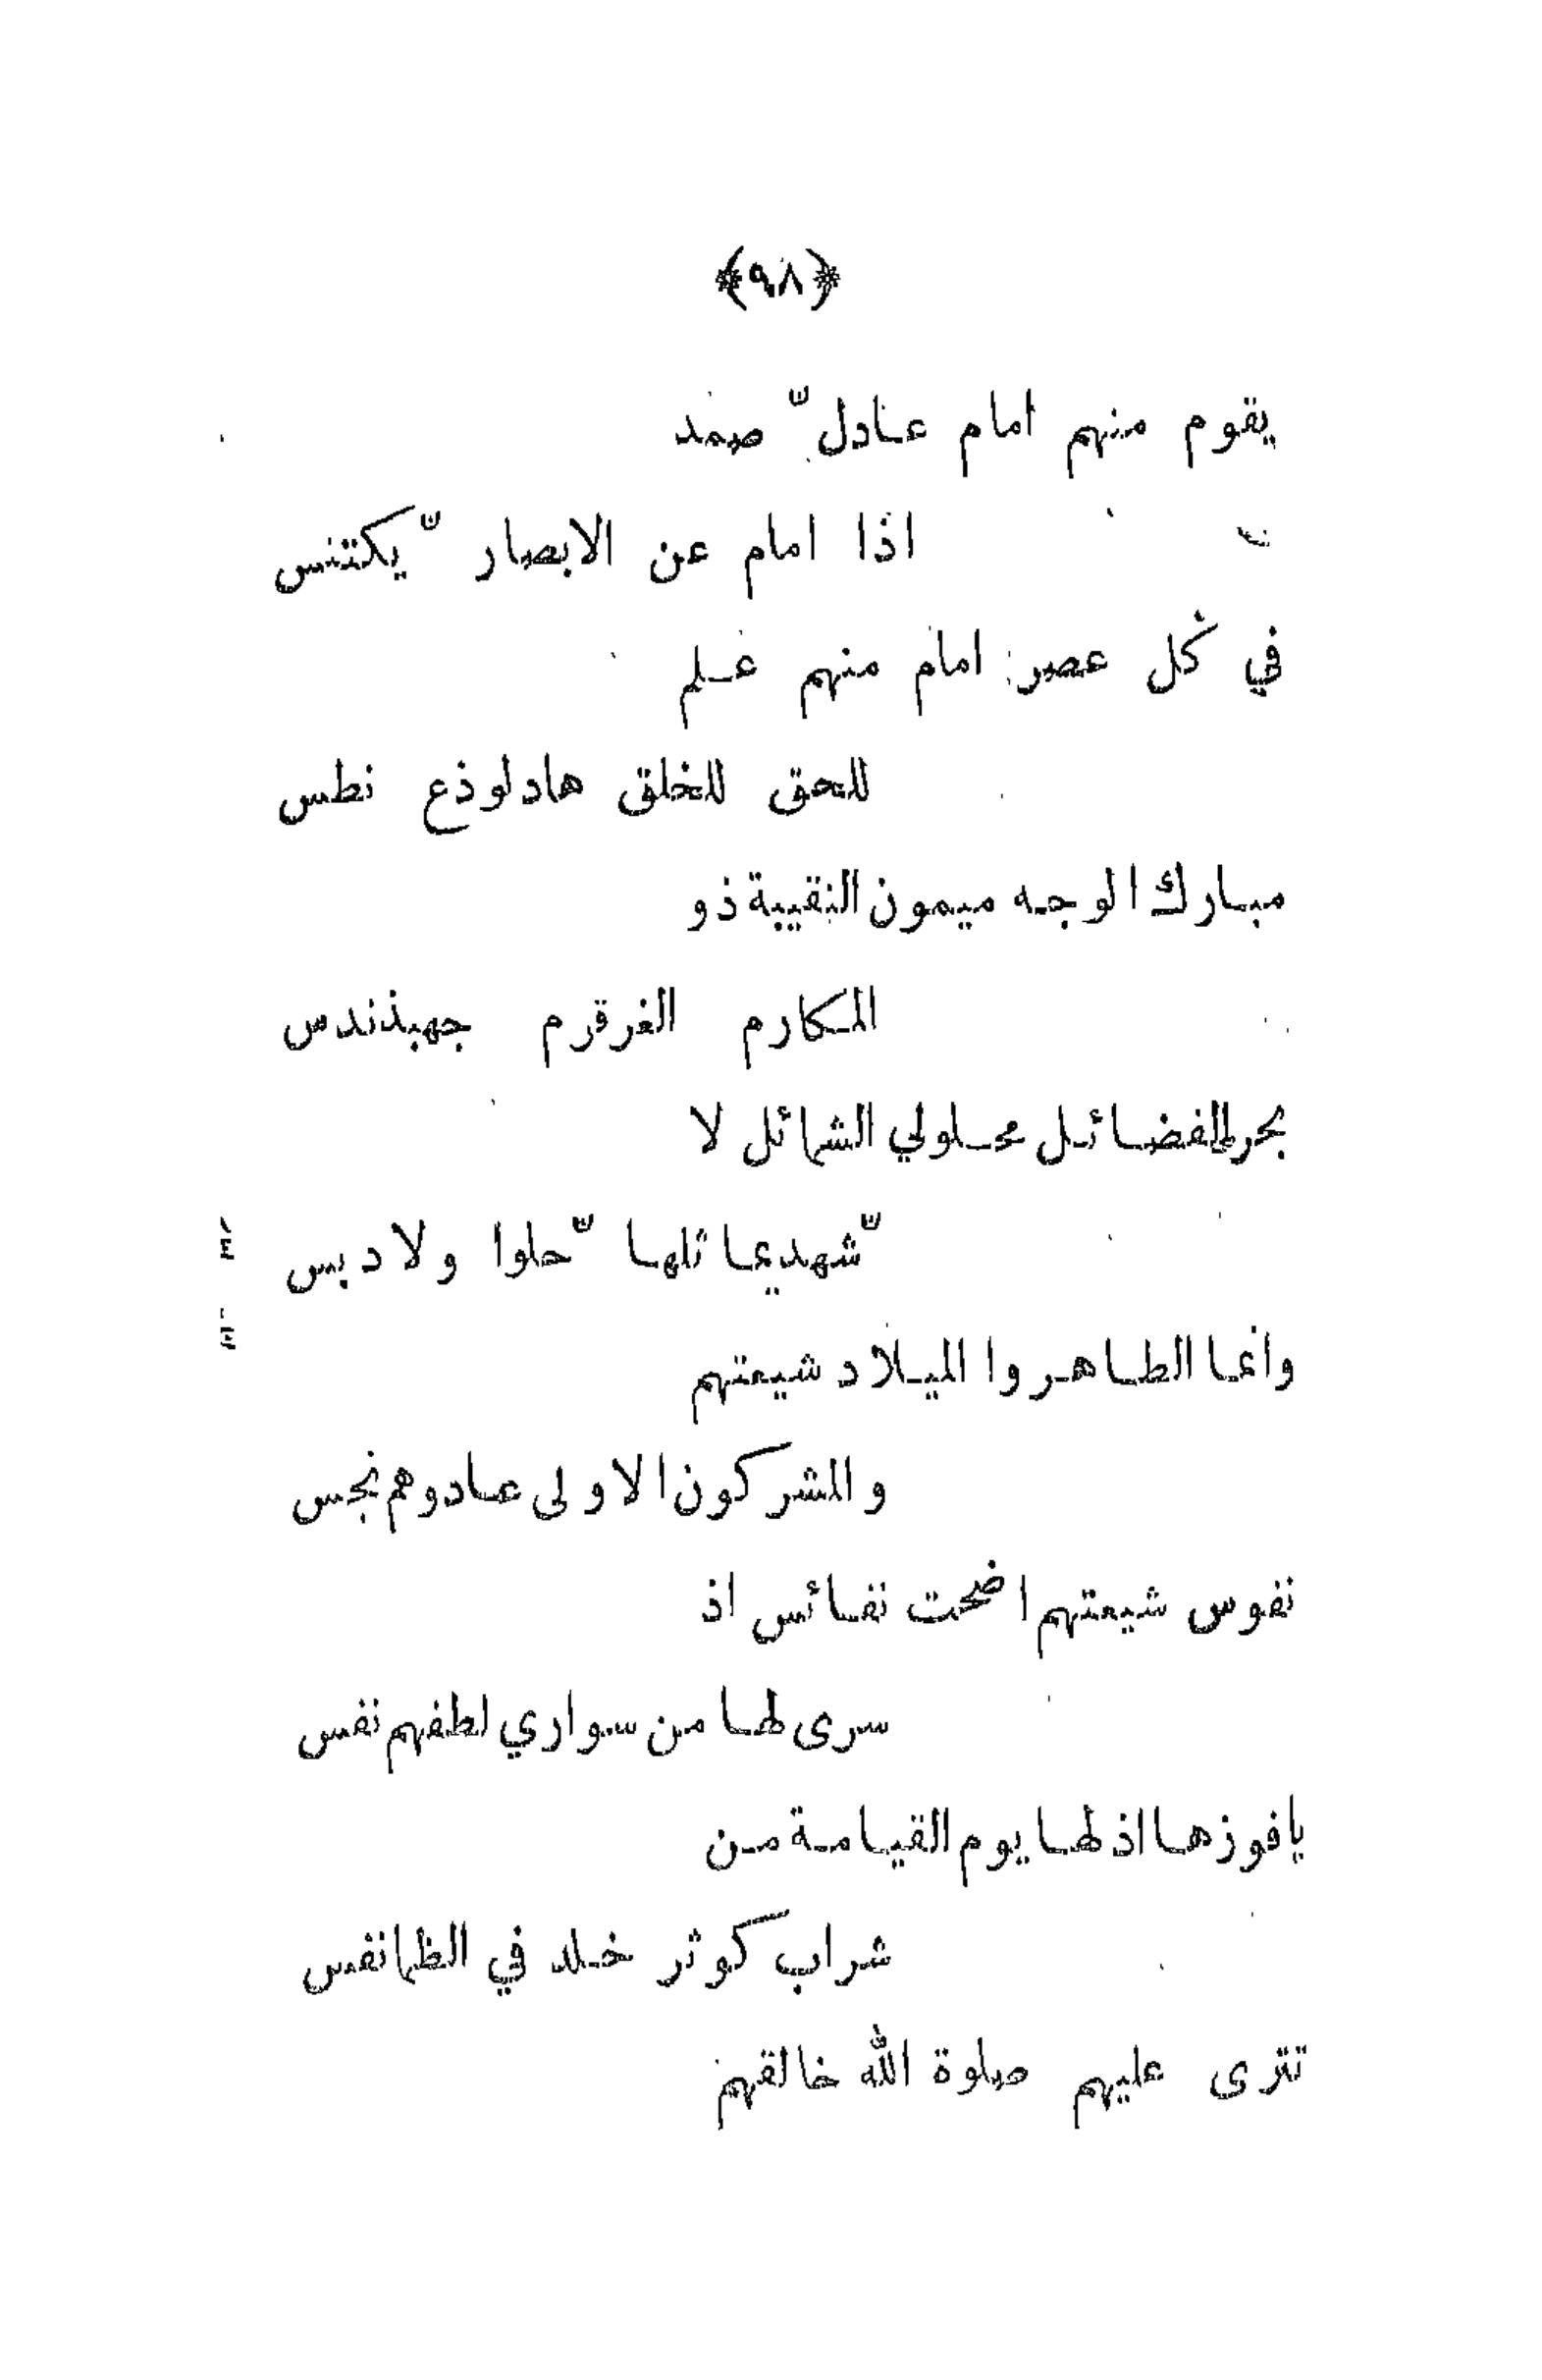 ﴿٩٨﴾
يقوم منهم امام عادل ّ صمد
اذا امام عن الابصار ّ يكتنس
في كل عصر امام منهم علم
للحق للخلق هاد لوذع نطس
مبارك الوجه ميمون النقيبة ذو
المكارم الغر قرم جهبذ ندس
بحر الفضائل محلولي الشمائل لا
ّ شهد يماثلها ّ حلوا ولا دبس
وانما الطاهروا الميلاد شيعتهم
والمشركون الاولى عادوهم نجس
نفوس شيعتهم اضحت نفائس اذ
سرى لها من سواري لطفهم نفس
يا فوزها اذ لها يوم القيامة من
شراب كوثر خلد في الظما نفس
تترى عليهم صلوة الله خالقهم